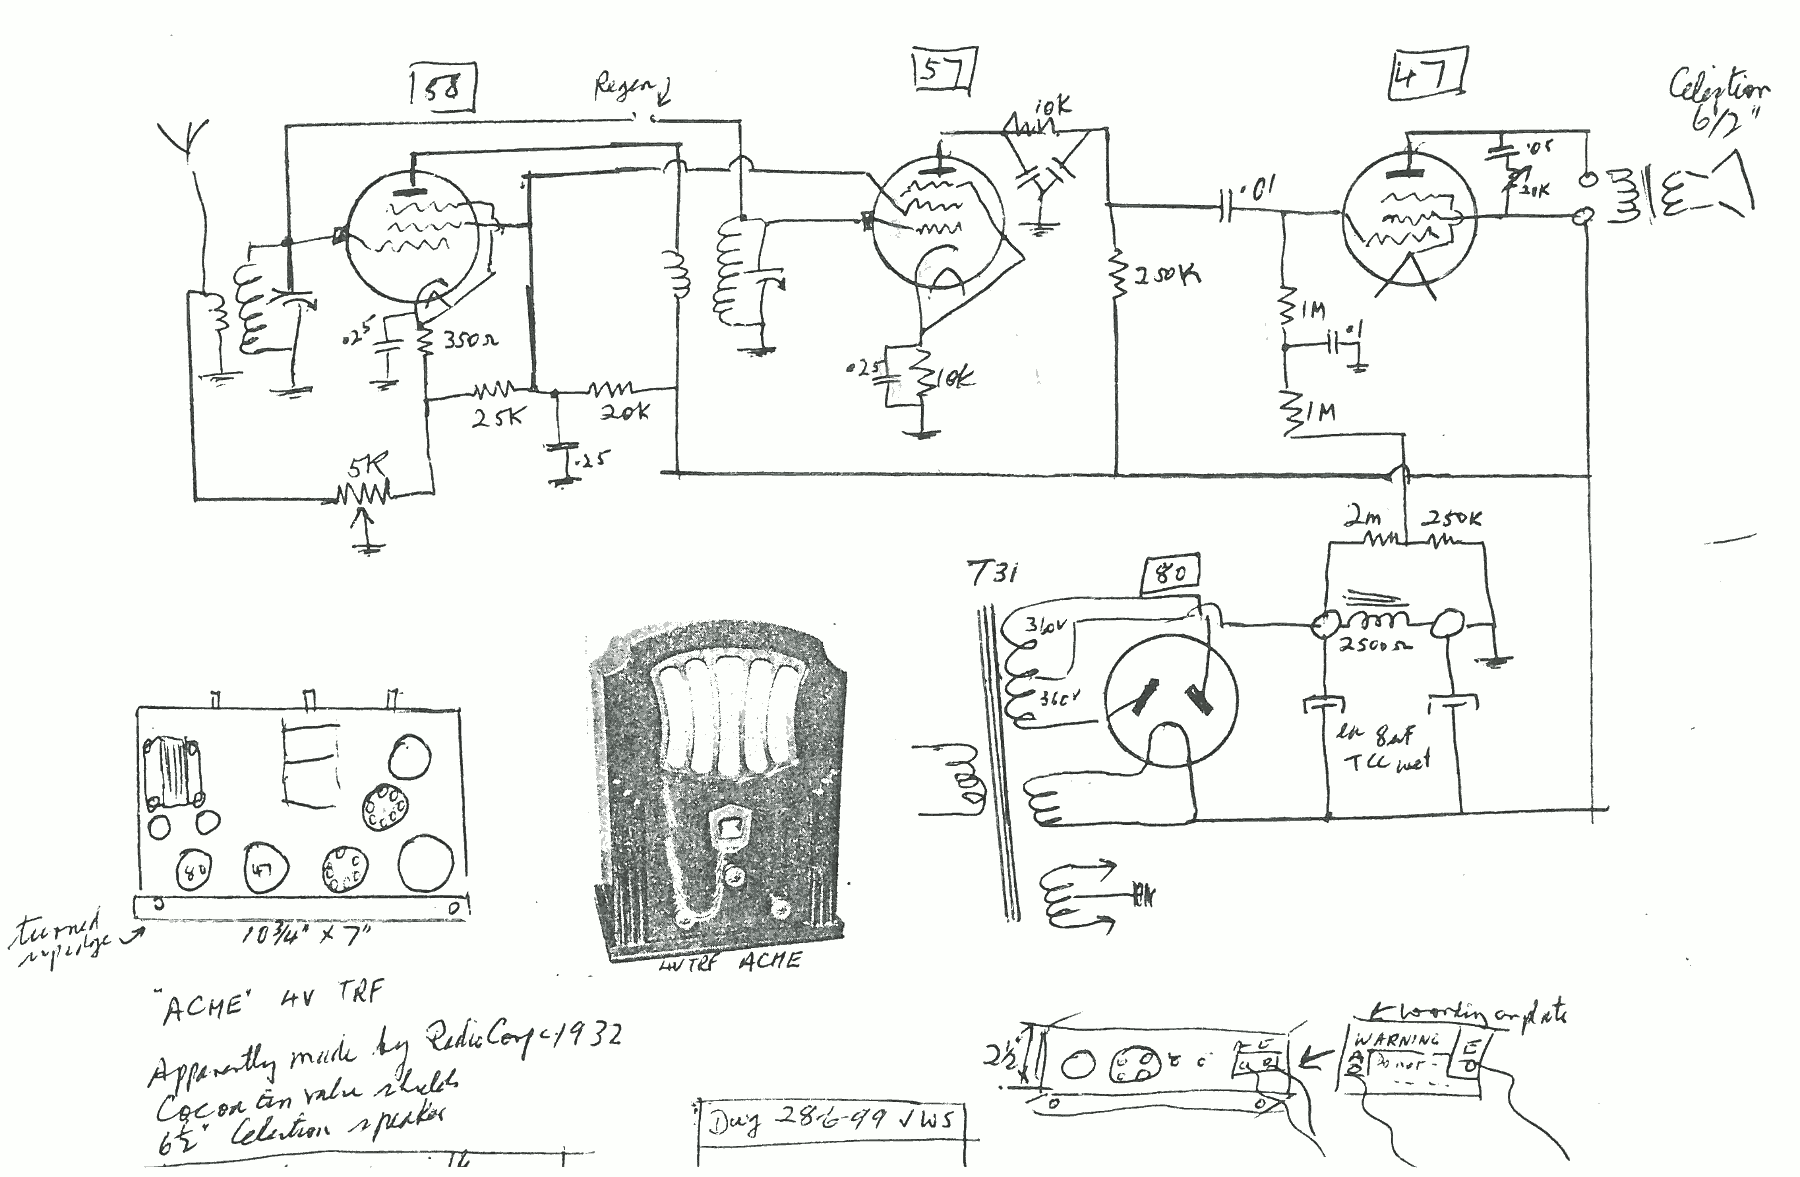 58
Regen
57
47
Celestion
6 1/2"
10K
.05
20K
.01
250K
.25
350Ω
1M
.1
25K
20K
.25
10K
1M
.25
5K
2m 250K
T31
80
360V
2500Ω
360V
8uF
TCC wet
80
47
turned
10 3/4" x 7"
4V TRF ACME
"ACME" 4V TRF
Apparently made by RadioCorp c.1932
Cocoa tin valve shields
6½" Celestion speaker
2½"
A E
Wording on plate
WARNING
Do not
A
E
Dwg 28-6-99 JWS